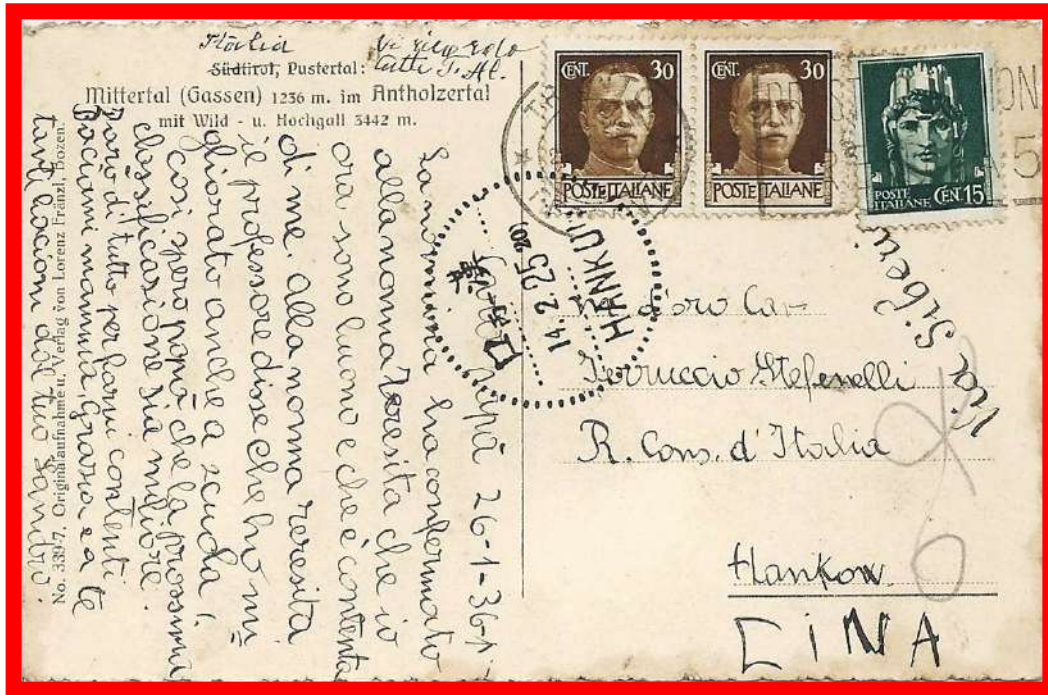 Italia
Südtirol, Pustertal:
Mittertal (Gassen) 1236 m. im Antholzertal
mit Wild - u. Hochgall 3442 m.
No. 339-7. Originalaufnahme u. Verlag von Lorenz Fränzl, Bozen.
papà 26-1-36
La nonnina ha confermato
alla nonna Teresita che io
ora sono buono e che è contenta
di me. alla nonna Teresita
il professore disse che ho mi
gliorato anche a scuola,
così spero papà che la prossima
classificasione sia migliore.
Farò di tutto per farvi contenti
Baciami mammà, Grazia e a te
tanti bacioni dal tuo Sandro
CENT. 30
POSTE ITALIANE
CENT. 30
POSTE ITALIANE
POSTE
ITALIANE CEN. 15
14.2.25
HANKOW
Via Siberia
M. d'oro Cav
Ferruccio Stefenelli
R. Cons. d'Italia
Hankow
CINA